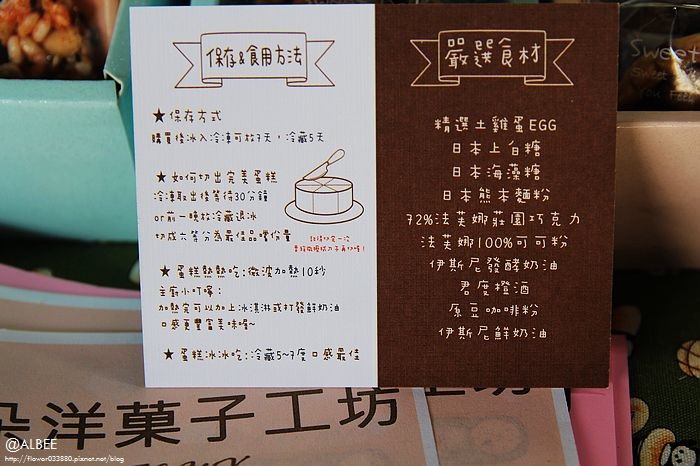 保存&食用方法
★保存方式
購買後冰入冷凍可放7天，冷藏5天
★如何切出完美蛋糕
冷凍取出後等待30分鐘
or前一晚放冷藏退冰
切成六等分為最佳品嚐份量
★蛋糕熱熱吃:微波加熱10秒
主廚小叮嚀:
加熱完可以加上冰淇淋或打發鮮奶油
口感更豐富美味喔~
★蛋糕冰冰吃:冷藏5~7度口感最佳
嚴選食材
精選土雞蛋EGG
日本上白糖
日本海藻糖
日本熊本麵粉
72%法芙娜莊園巧克力
法芙娜100%可可粉
伊斯尼發酵奶油
君度橙酒
原豆咖啡粉
伊斯尼鮮奶油
Sweet
洋菓子工坊
@ALBEE
http://flower033880.pixnet.net/blog